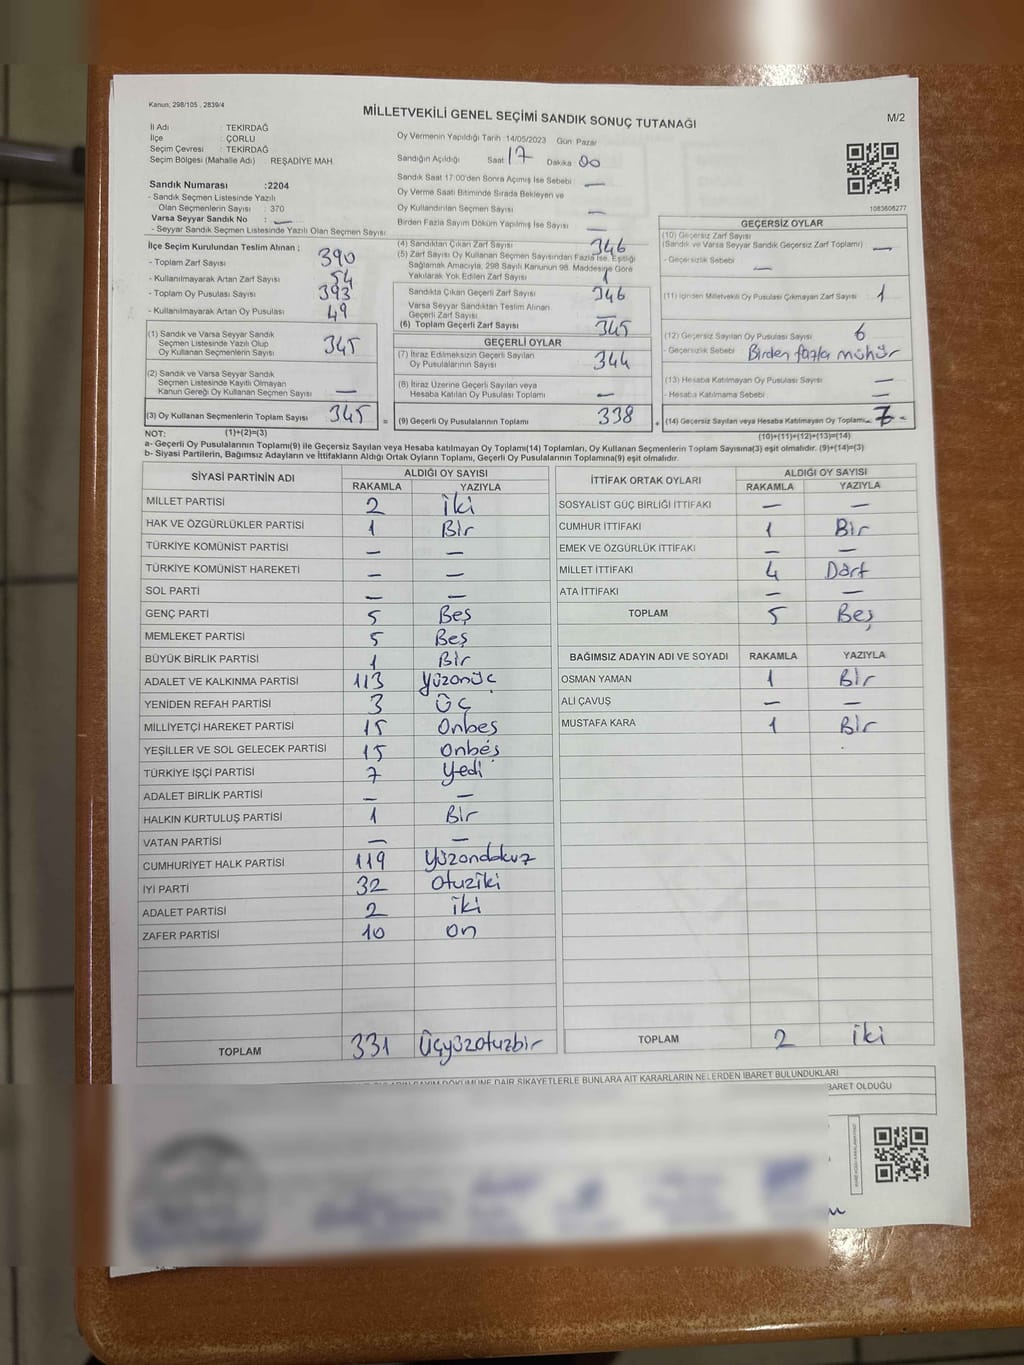 Kanun; 298/105 , 2839/4
MİLLETVEKİLİ GENEL SEÇİMİ SANDIK SONUÇ TUTANAĞI
M/2
İl Adı : TEKİRDAĞ
İlçe : ÇORLU
Seçim Çevresi : TEKİRDAĞ
Seçim Bölgesi (Mahalle Adı) REŞADİYE MAH
Oy Vermenin Yapıldığı Tarih :14/05/2023 Gün Pazar
Sandığın Açıldığı Saat 17 Dakika 00
Sandık Saat 17:00'den Sonra Açımış İse Sebebi —
Oy Verme Saati Bitiminde Sırada Bekleyen ve
Oy Kullandırılan Seçmen Sayısı —
Birden Fazla Sayım Döküm Yapılmış İse Sayısı —
1083606277
Sandık Numarası :2204
- Sandık Seçmen Listesinde Yazılı
Olan Seçmenlerin Sayısı : 370
Varsa Seyyar Sandık No : —
- Seyyar Sandık Seçmen Listesinde Yazılı Olan Seçmen Sayısı
İlçe Seçim Kurulundan Teslim Alınan ;
- Toplam Zarf Sayısı 390
- Kullanılmayarak Artan Zarf Sayısı 54
- Toplam Oy Pusulası Sayısı 393
- Kullanılmayarak Artan Oy Pusulası 49
(1) Sandık ve Varsa Seyyar Sandık
Seçmen Listesinde Yazılı Olup
Oy Kullanan Seçmenlerin Sayısı 345
(2) Sandık ve Varsa Seyyar Sandık
Seçmen Listesinde Kayıtlı Olmayan
Kanun Gereği Oy Kullanan Seçmen Sayısı —
(3) Oy Kullanan Seçmenlerin Toplam Sayısı 345 =
(4) Sandıktan Çıkan Zarf Sayısı 346
(5) Zarf Sayısı Oy Kullanan Seçmen Sayısından Fazla İse, Eşitliği
Sağlamak Amacıyla, 298 Sayılı Kanunun 98. Maddesine Göre
Yakılarak Yok Edilen Zarf Sayısı 1
Sandıkta Çıkan Geçerli Zarf Sayısı 346
Varsa Seyyar Sandıktan Teslim Alınan
Geçerli Zarf Sayısı —
(6) Toplam Geçerli Zarf Sayısı 345
GEÇERLİ OYLAR
(7) İtiraz Edilmeksizin Geçerli Sayılan
Oy Pusulalarının Sayısı 344
(8) İtiraz Üzerine Geçerli Sayılan veya
Hesaba Katılan Oy Pusulası Toplamı —
(9) Geçerli Oy Pusulalarının Toplamı 338 +
GEÇERSİZ OYLAR
(10) Geçersiz Zarf Sayısı
(Sandık ve Varsa Seyyar Sandık Geçersiz Zarf Toplamı) —
- Geçersizlik Sebebi —
(11) İçinden Milletvekili Oy Pusulası Çıkmayan Zarf Sayısı 1
(12) Geçersiz Sayılan Oy Pusulası Sayısı 6
- Geçersizlik Sebebi Birden fazla mühür
(13) Hesaba Katılmayan Oy Pusulası Sayısı —
- Hesaba Katılmama Sebebi —
(14) Geçersiz Sayılan veya Hesaba Katılmayan Oy Toplamı 7
NOT: (1)+(2)=(3) (10)+(11)+(12)+(13)=(14)
a- Geçerli Oy Pusulalarının Toplamı(9) ile Geçersiz Sayılan veya Hesaba katılmayan Oy Toplamı(14) Toplamları, Oy Kullanan Seçmenlerin Toplam Sayısına(3) eşit olmalıdır. (9)+(14)=(3)
b- Siyasi Partilerin, Bağımsız Adayların ve İttifakların Aldığı Ortak Oyların Toplamı, Geçerli Oy Pusulalarının Toplamına(9) eşit olmalıdır.
SİYASİ PARTİNİN ADI ALDIĞI OY SAYISI
RAKAMLA YAZIYLA
MİLLET PARTİSİ 2 İki
HAK VE ÖZGÜRLÜKLER PARTİSİ 1 Bir
TÜRKİYE KOMÜNİST PARTİSİ — —
TÜRKİYE KOMÜNİST HAREKETİ — —
SOL PARTİ — —
GENÇ PARTİ 5 Beş
MEMLEKET PARTİSİ 5 Beş
BÜYÜK BİRLİK PARTİSİ 1 Bir
ADALET VE KALKINMA PARTİSİ 113 Yüzonüç
YENİDEN REFAH PARTİSİ 3 Üç
MİLLİYETÇİ HAREKET PARTİSİ 15 Onbeş
YEŞİLLER VE SOL GELECEK PARTİSİ 15 Onbeş
TÜRKİYE İŞÇİ PARTİSİ 7 Yedi
ADALET BİRLİK PARTİSİ — —
HALKIN KURTULUŞ PARTİSİ 1 Bir
VATAN PARTİSİ — —
CUMHURİYET HALK PARTİSİ 119 Yüzondokuz
İYİ PARTİ 32 Otuziki
ADALET PARTİSİ 2 iki
ZAFER PARTİSİ 10 On
TOPLAM 331 Üçyüzotuzbir
İTTİFAK ORTAK OYLARI ALDIĞI OY SAYISI
RAKAMLA YAZIYLA
SOSYALİST GÜÇ BİRLİĞİ İTTİFAKI — —
CUMHUR İTTİFAKI 1 Bir
EMEK VE ÖZGÜRLÜK İTTİFAKI — —
MİLLET İTTİFAKI 4 Dört
ATA İTTİFAKI — —
TOPLAM 5 Beş
BAĞIMSIZ ADAYIN ADI VE SOYADI RAKAMLA YAZIYLA
OSMAN YAMAN 1 Bir
ALİ ÇAVUŞ — —
MUSTAFA KARA 1 Bir
TOPLAM 2 İki
SAYIM DÖKÜMÜNE DAİR ŞİKAYETLERLE BUNLARA AİT KARARLARIN NELERDEN İBARET BULUNDUKLARI
İBARET OLDUĞU